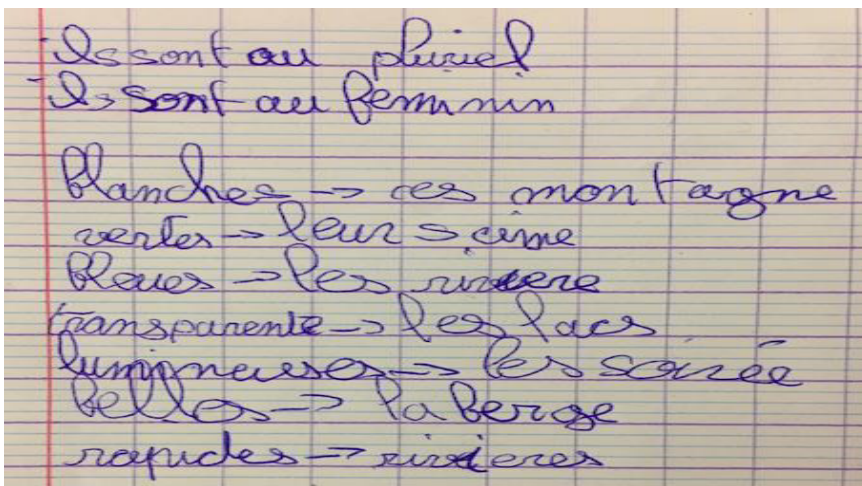 - Ils sont au pluriel
- Ils sont au feminin
blanches → ces montagne
vertes → leurs cime
bleues → les riviere
transparente → les lacs
lumineuses → les soirée
belles → la berge
rapides → rivieres